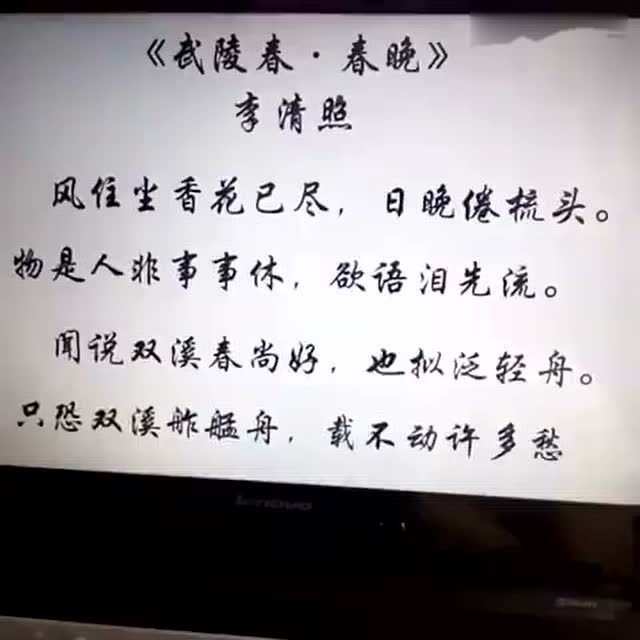 《武陵春·春晚》
李清照
风住尘香花已尽，日晚倦梳头。
物是人非事事休，欲语泪先流。
闻说双溪春尚好，也拟泛轻舟。
只恐双溪舴艋舟，载不动许多愁
lenovo